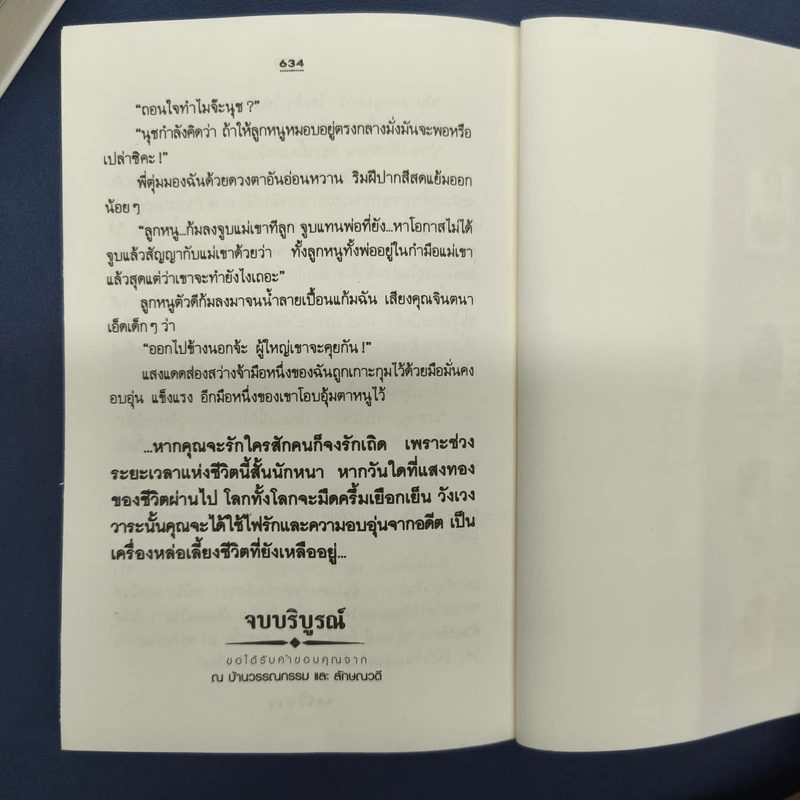 634
“ถอนใจทำไมจ๊ะนุช ?”
“นุชกำลังคิดว่า ถ้าให้ลูกหนูหมอบอยู่ตรงกลางมั่งมันจะพอหรือ
เปล่าซิคะ !”
พี่ตุ่มมองฉันด้วยดวงตาอันอ่อนหวาน ริมฝีปากสีสดแย้มออก
น้อยๆ
“ลูกหนู...ก้มลงจูบแม่เขาทีลูก จูบแทนพ่อที่ยัง...หาโอกาสไม่ได้
จูบแล้วสัญญากับแม่เขาด้วยว่า ทั้งลูกหนูทั้งพ่ออยู่ในกำมือแม่เขา
แล้วสุดแต่ว่าเขาจะทำยังไงเถอะ”
ลูกหนูตัวดีก้มลงมาจนน้ำลายเปื้อนแก้มฉัน เสียงคุณจินตนา
เอ็ดเด็กๆ ว่า
“ออกไปข้างนอกจ้ะ ผู้ใหญ่เขาจะคุยกัน !”
แสงแดดส่องสว่างจ้ามือหนึ่งของฉันถูกเกาะกุมไว้ด้วยมือมั่นคง
อบอุ่น แข็งแรง อีกมือหนึ่งของเขาโอบอุ้มตาหนูไว้
...หากคุณจะรักใครสักคนก็จงรักเถิด เพราะช่วง
ระยะเวลาแห่งชีวิตนี้สั้นนักหนา หากวันใดที่แสงทอง
ของชีวิตผ่านไป โลกทั้งโลกจะมืดครึ้มเยือกเย็น วังเวง
วาระนั้นคุณจะได้ใช้ไฟรักและความอบอุ่นจากอดีต เป็น
เครื่องหล่อเลี้ยงชีวิตที่ยังเหลืออยู่...
จบบริบูรณ์
ขอได้รับคำขอบคุณจาก
ณ บ้านวรรณกรรม และ ลักษณวดี